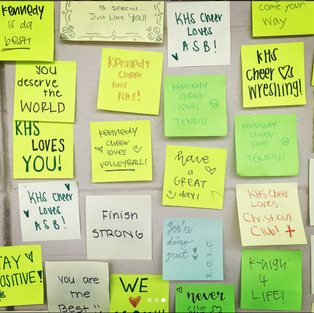 Kennedy
is da
best!
is special...
Just Like You!
KHS Cheer
Loves
A S B!
come your
way
YOU
deserve the
WORLD
Kennedy
Cheer
luvs
NHS!
KHS
Cheer
Wrestling!
Kennedy
cheer
loves
TENNIS!
KHS
LOVES
YOU!
Kennedy
cheer
loves
VOLLEYBALL!
have
a
GREAT
day!
Kennedy
cheer
loves
TENNIS!
KHS Cheer
Loves
A S B!
Finish
STRONG
You're
doing
great
x.o.x.o.
KHS Cheer
Loves
Christian
Club!
STAY
POSITIVE!
you are
the
Best!!
WE
never
K-High
4
LIFE!